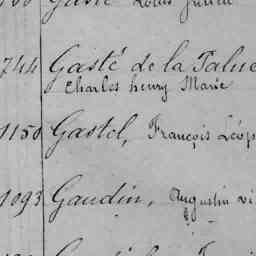 Louis Julien
744 Gasté de la Palue
Charles henry Marie
1150 Gastel, François Léop
1093 Gaudin, Augustin vi